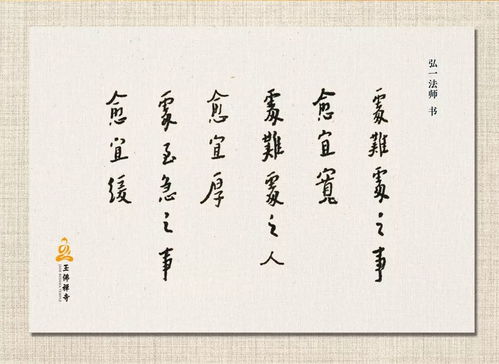 弘一法师 书
處難處之事
愈宜寬
處難處之人
愈宜厚
處至急之事
愈宜緩
玉佛禅寺